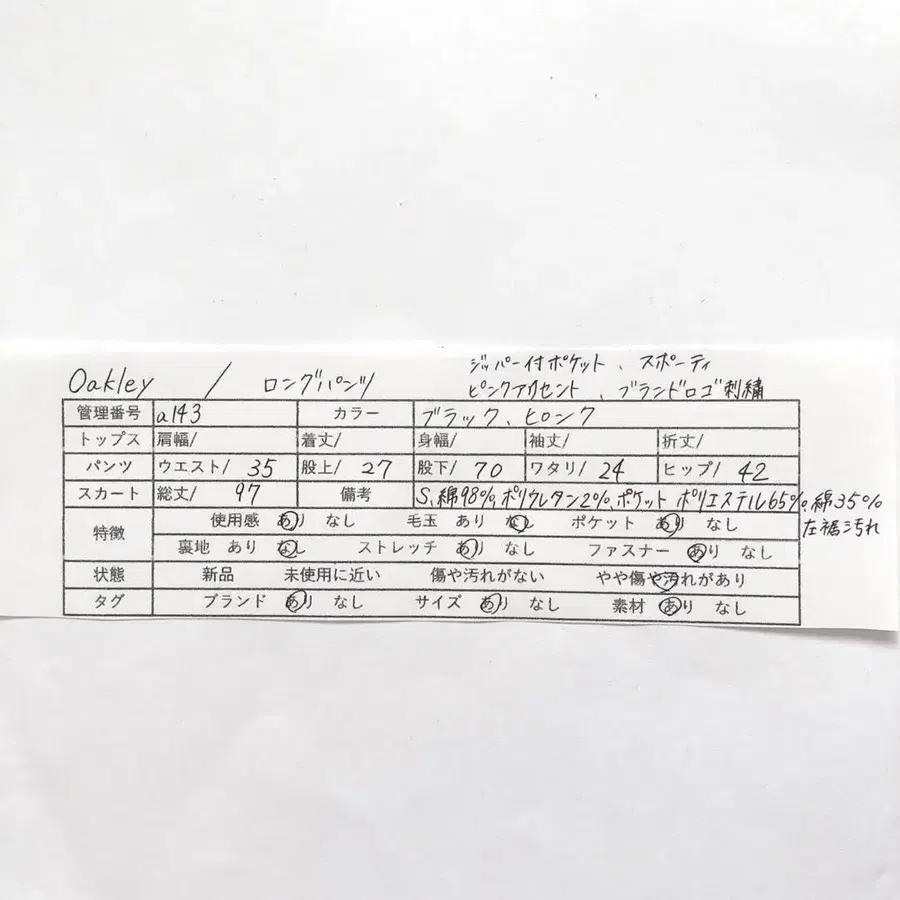 ジッパー付ポケット、スポーティ
Oakley / ロングパンツ ピンクアクセント、ブランドロゴ刺繍
管理番号 a143 カラー ブラック、ピンク
トップス 肩幅/ 着丈/ 身幅/ 袖丈/ 裄丈/
パンツ ウエスト/ 35 股上/ 27 股下/ 70 ワタリ/ 24 ヒップ/ 42
スカート 総丈/ 97 備考 S、綿98%、ポリウレタン2%、ポケット ポリエステル65%、綿35%
左裾汚れ
特徴 使用感 あり なし 毛玉 あり なし ポケット あり なし
裏地 あり なし ストレッチ あり なし ファスナー あり なし
状態 新品 未使用に近い 傷や汚れがない やや傷や汚れがあり
タグ ブランド あり なし サイズ あり なし 素材 あり なし